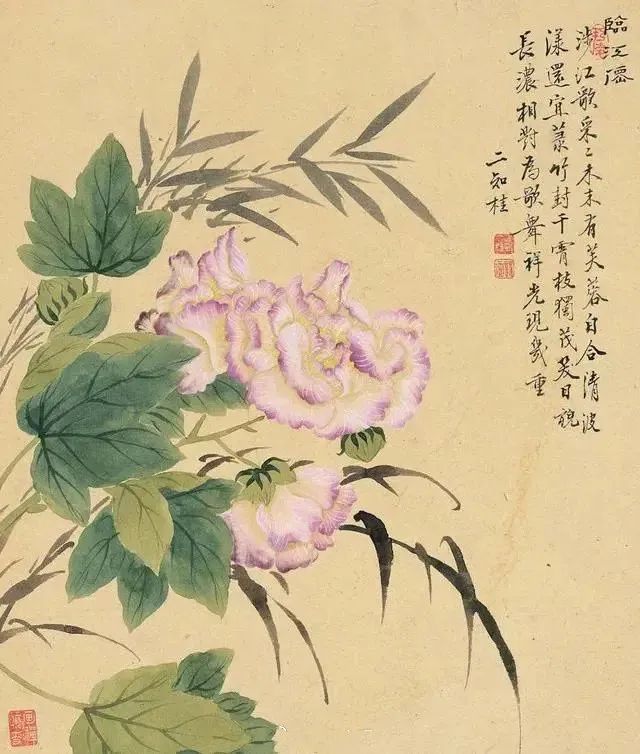 臨江僊
涉江歌采〻木末有芙蓉自合清波
漾還宜菉竹封干霄枝獨茂炙日貌
長濃相對為歌舞祥光現幾重
二知桂